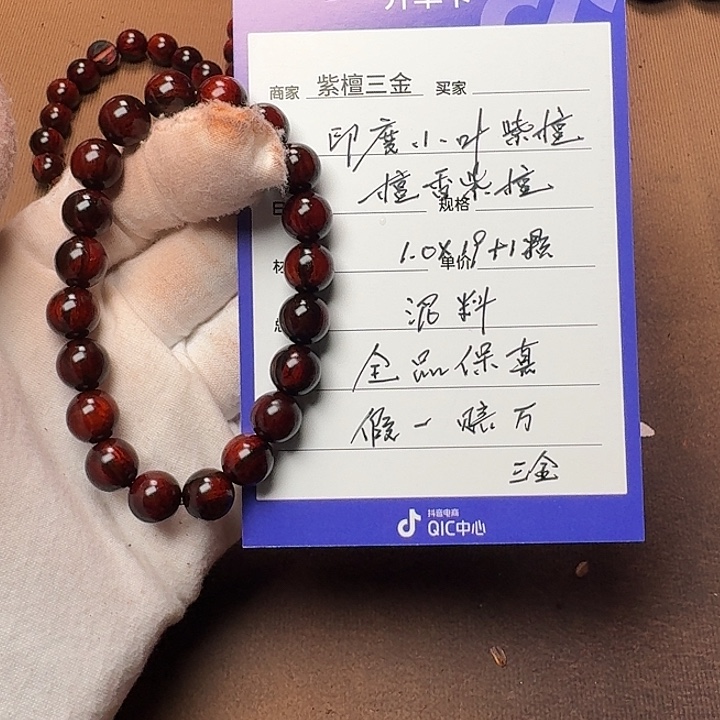 开单卡
商家 紫檀三金 买家
印度小叶紫檀
檀香紫檀
规格
1.0×19+1颗
单价
泥料
全品保真
假一赔万
三金
抖音电商
QIC中心